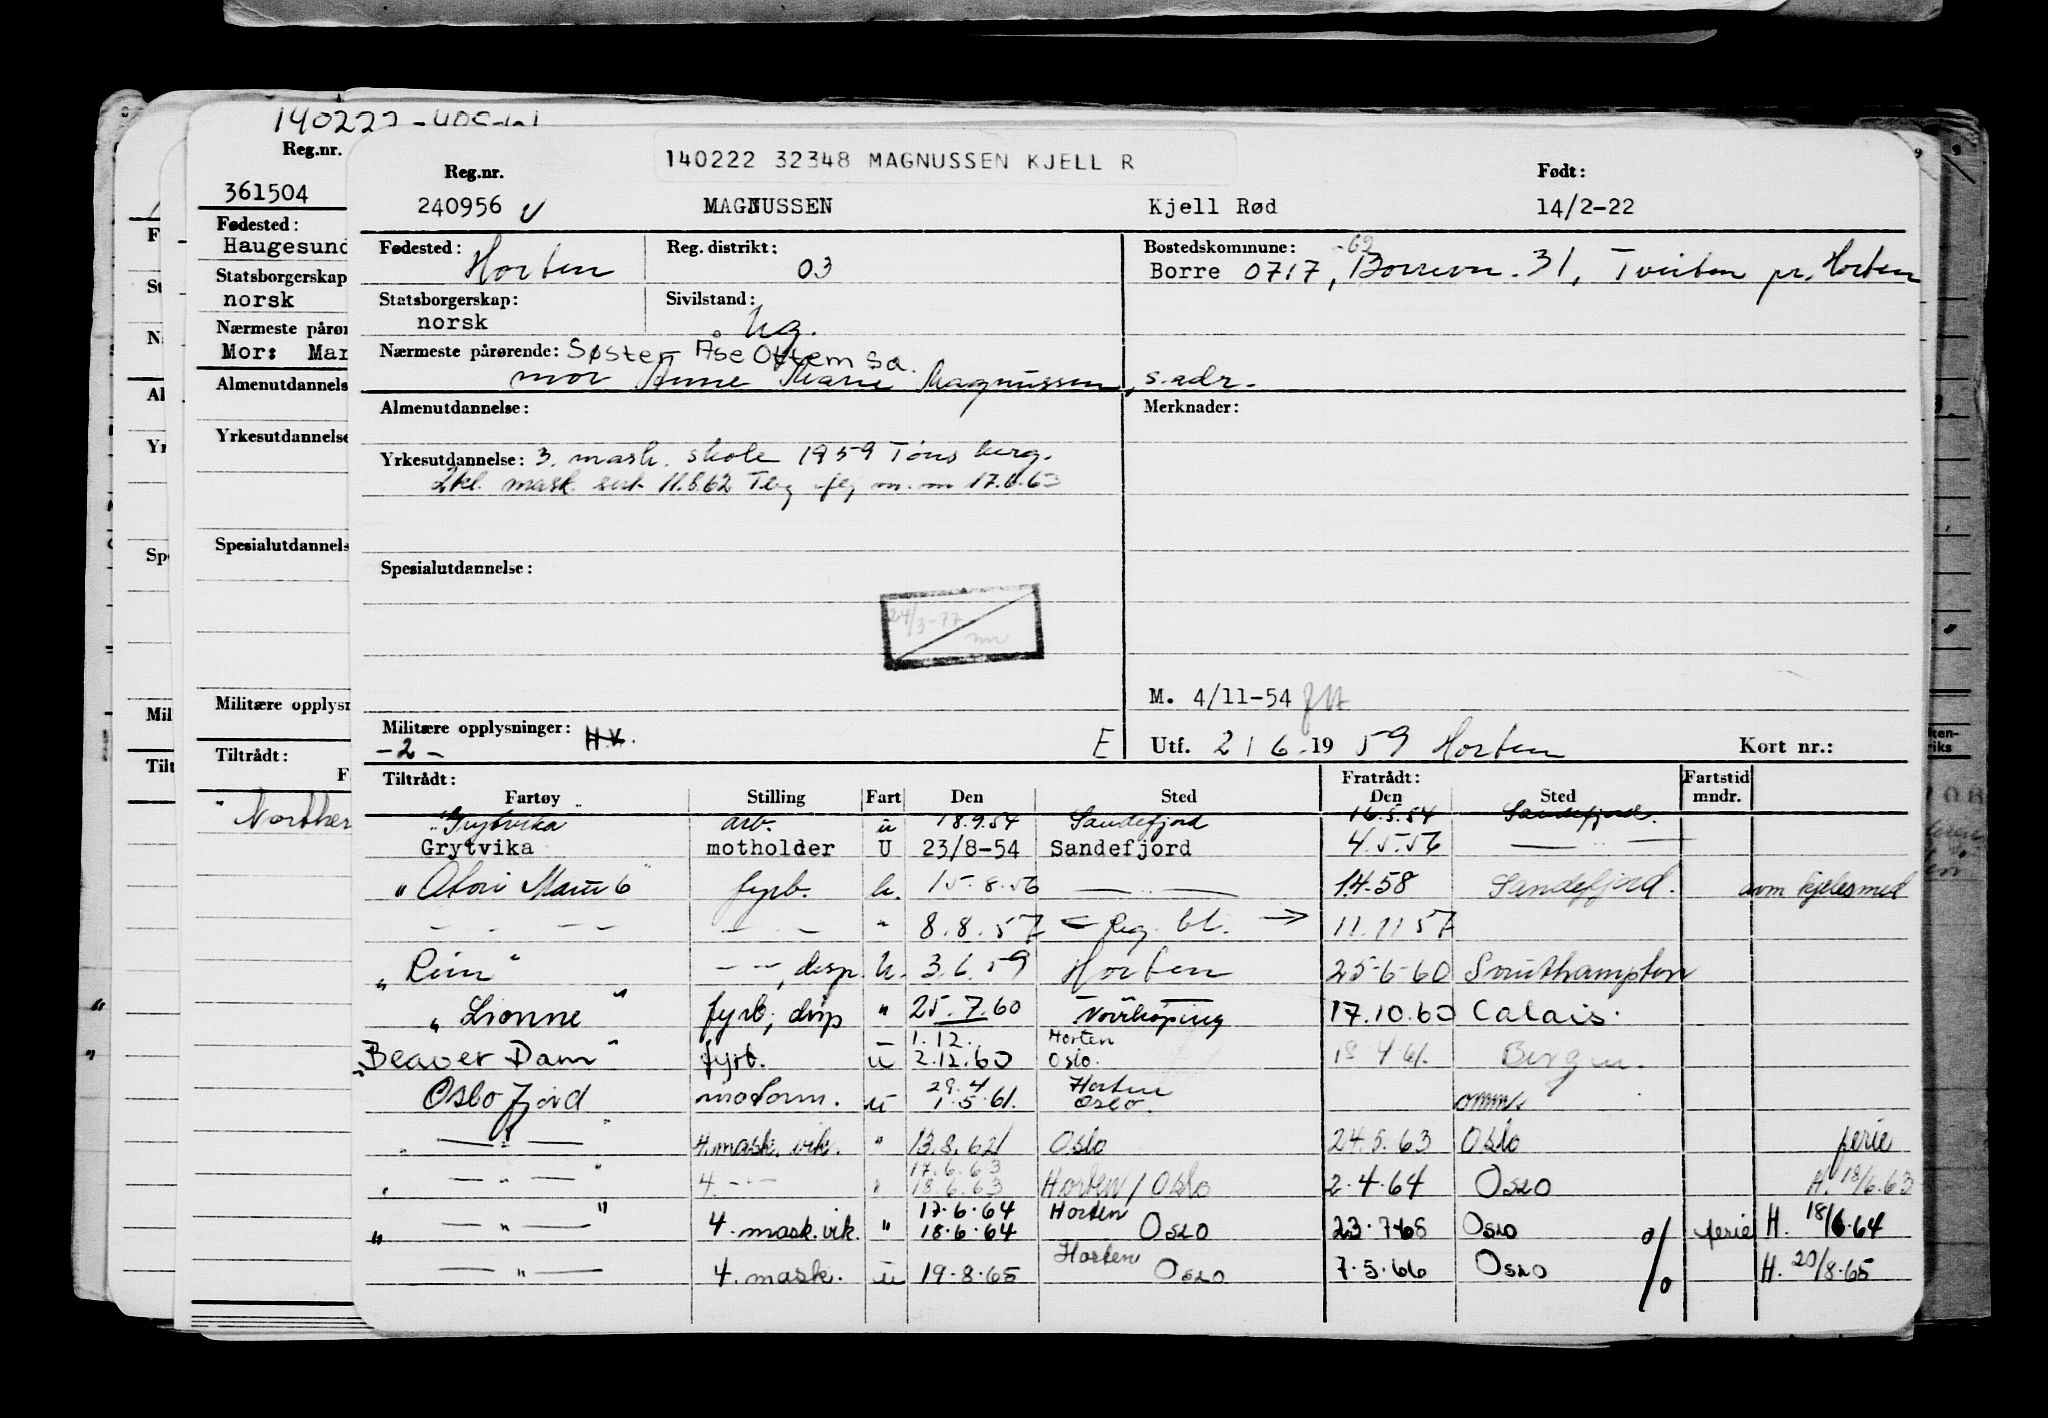 140222
Reg.nr.
361504
Fødested:
Haugesund
Statsborgerskap
norsk
Nærmeste pårør
Mor: Mar
Almenutdannels
Yrkesutdannelse
Spesialutdannels
Militære opplysn
Tiltrådt:
140222 32348 MAGNUSSEN KJELL R
Reg.nr. Født:
240956 MAGNUSSEN Kjell Rød 14/2-22
Fødested: Horten Reg. distrikt: 03 Bostedskommune: -62
Borre 0717, Borrevn. 31, Tveiten pr. Horten
Statsborgerskap: norsk Sivilstand: Ug.
Nærmeste pårørende: Søster Åse Ottem sa.
mor Anne Marie Magnussen, s.adr.
Almenutdannelse: Merknader:
Yrkesutdannelse: 3. mask. skole 1959 Tønsberg.
2kl. mask. sert. 11.6.62 Tbg 17.6.63
Spesialutdannelse:
24/3-77
M. 4/11-54
Militære opplysninger: H.V.
-2- E Utf. 2/6-1959 Horten Kort nr.:
Tiltrådt: Fratrådt: Fartstid
Fartøy Stilling Fart Den Sted Den Sted mndr.
"Grytvika" arb. u 18.9.54 Sandefjord 16.5.54 Sandefjord.
Grytvika motholder U 23/8-54 Sandefjord 4.5.56 — " —
fyrb. u. 15.8.56 — " — 1.4.58 Sandefjord.
— " — — " — " 8.8.57 ← Reg. bl. → 11.11 57
"Rim" — " —, disp. U. 3.6.59 Horten 25-6-60 Southampton
"Lionne" fyrb, disp " 25.7.60 Norrköping 17.10.60 Calais.
"Beaver Dam" fyrb. u 1.12. 2.12.60 Horten Oslo. 18.4.61. Bergen.
Oslofjord motorm. u 29.4 1.5.61. Horten Oslo. omm.
" — " — " 4. mask. vik. " 13.8.62 Oslo 24.5.63 Oslo ferie
" — " — " 4. — " — " 17.6.63 18.6.63 Horten / Oslo 2.4.64 Oslo H. 18/6.63
" — " — " 4. mask. vik. " 17.6.64 18.6.64 Horten Oslo 23.7.68 Oslo % ferie H. 18/6.64
— " — 4. mask. u 19.8.65 Horten Oslo 7.5.66 Oslo % H. 20/8.65